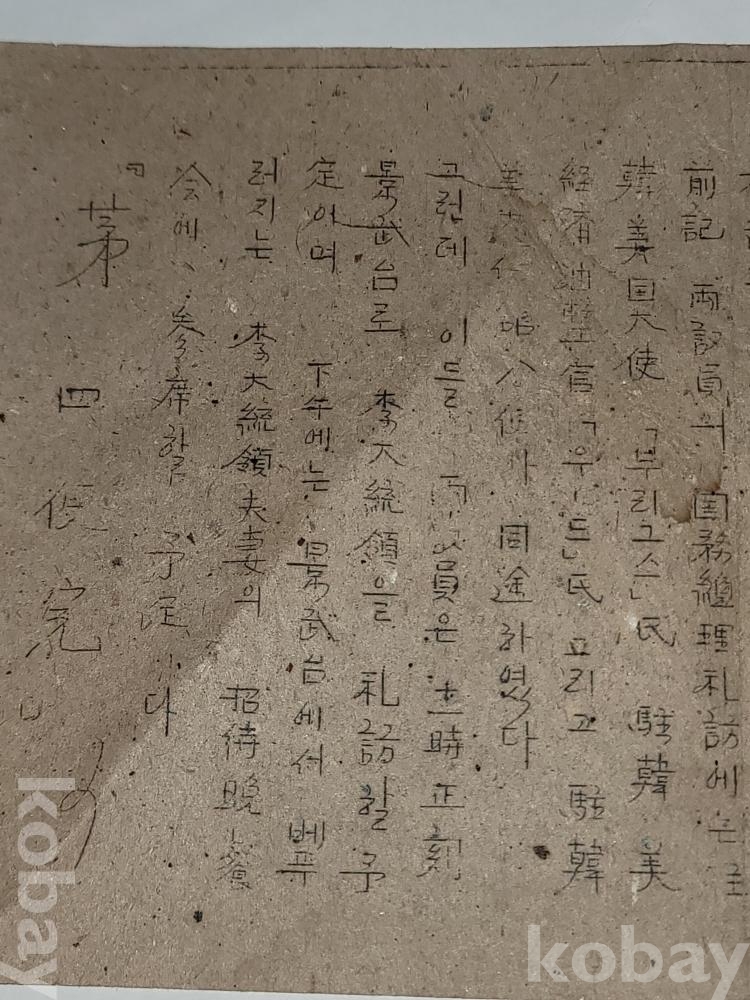 前記 両議員의 国務總理礼訪에는 主
韓美国大使 「부리그스」氏 駐韓 美
経済調整官 「우드」氏 그리고 駐韓
美 同途하였다
그런데 이들 両議員은 十一時正刻
景武台로 李大統領을 礼訪할 予
定이며 下午에는 景武台에서 베푸
러지는 李大統領夫妻의 招待晩餐
会에 参席할 予定이다
『第四便完』
kobay
kobay